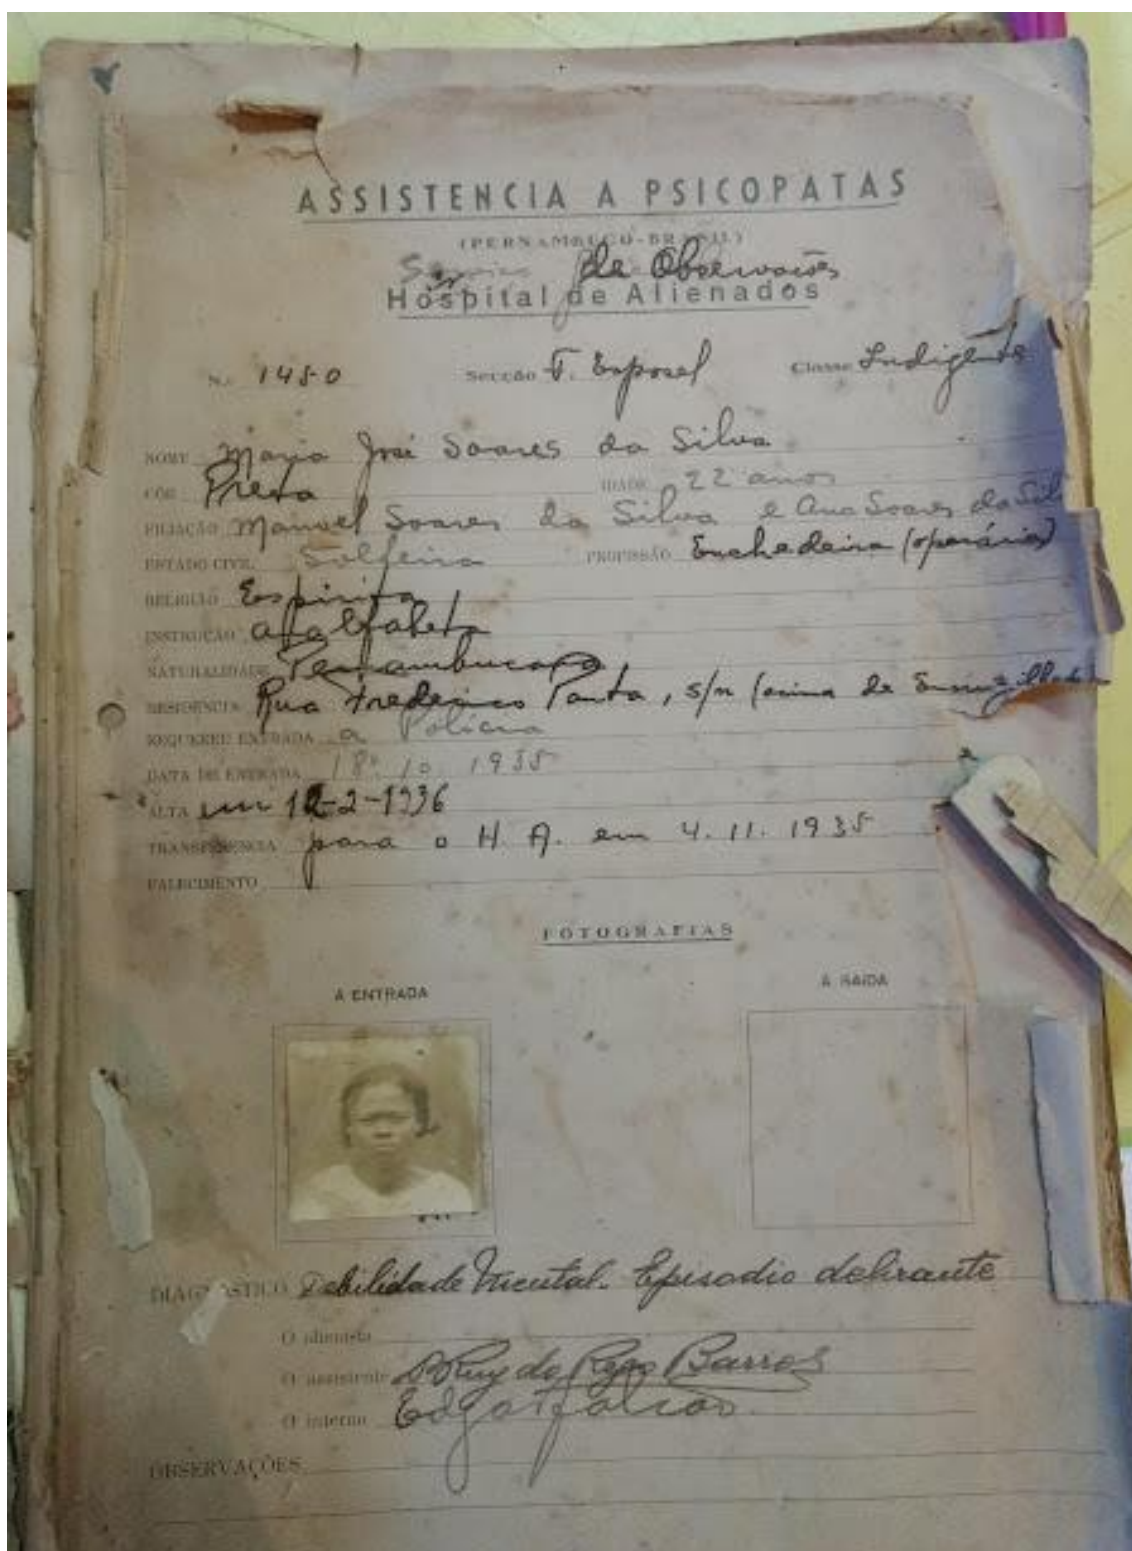 ASSISTENCIA A PSICOPATAS
(PERNAMBUCO-BRASIL)
de Observações
Hospital de Alienados
N.º 1450 Secção F. Esposel Classe Indigente
NOME Maria José Soares da Silva
CÔR Preta IDADE 22 anos
FILIAÇÃO Manoel Soares da Silva e Ana Soares da Sil
ESTADO CIVIL Solteira PROFISSÃO Enchedeira (operária)
RELIGIÃO Espirita
INSTRUCÇÃO Analfabeta
NATURALIDADE Pernambucana
RESIDENCIA Rua Frederico , s/n (acima de
REQUEREU ENTRADA a Policia
DATA DE ENTRADA 18 10 1935
ALTA em 12-2-1936
TRANSFERENCIA para o H. A. em 4. 11. 1935
FALECIMENTO
FOTOGRAFIAS
A ENTRADA
A SAIDA
DIAGNOSTICO Debilidade mental. Episodio delirante
O alienista
O assistente Ruy do Rego Barros
O interno Edgar Falcão
OBSERVAÇÕES